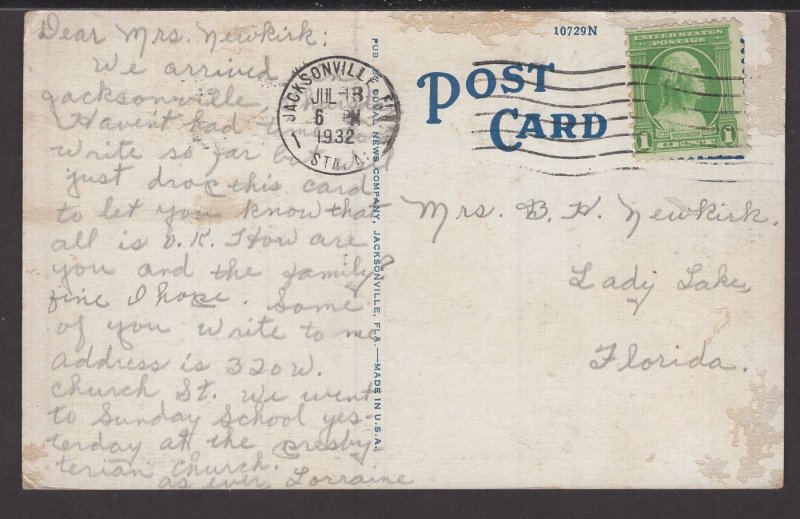 Dear Mrs. Newkirk:
We arrived in
Jacksonville,
Haven't had time to
write so far but
just drop this card
to let you know that
all is O.K. How are
you and the family?
fine I hope. Some
of you write to me
address is 320 W.
Church St. We went
to Sunday School yes-
terday at the Presby-
terian church.
as ever, Lorraine
PUB. BY DUVAL NEWS COMPANY, JACKSONVILLE, FLA.—MADE IN U.S.A.
JACKSONVILLE, FLA.
JUL 18
6 PM
1932
1 STA. A
10729N
POST
CARD
UNITED STATES
POSTAGE
WASHINGTON
1 CENT 1
Mrs. B. H. Newkirk.
Lady Lake,
Florida.